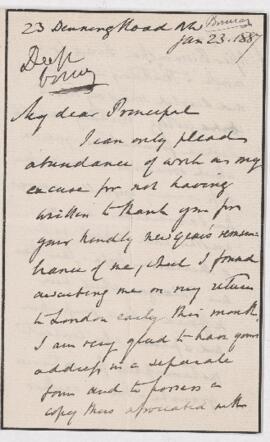 23 Denning Road NW
Jan 23. 1887
My dear Principal
I can only plead
abundance of work as my
excuse for not having
written to thank you for
your kindly new year's remem-
brance of me, which I found
awaiting me on my return
to London early this month.
I am very glad to have your
address in a separate
form and to possess a
copy thus associated with